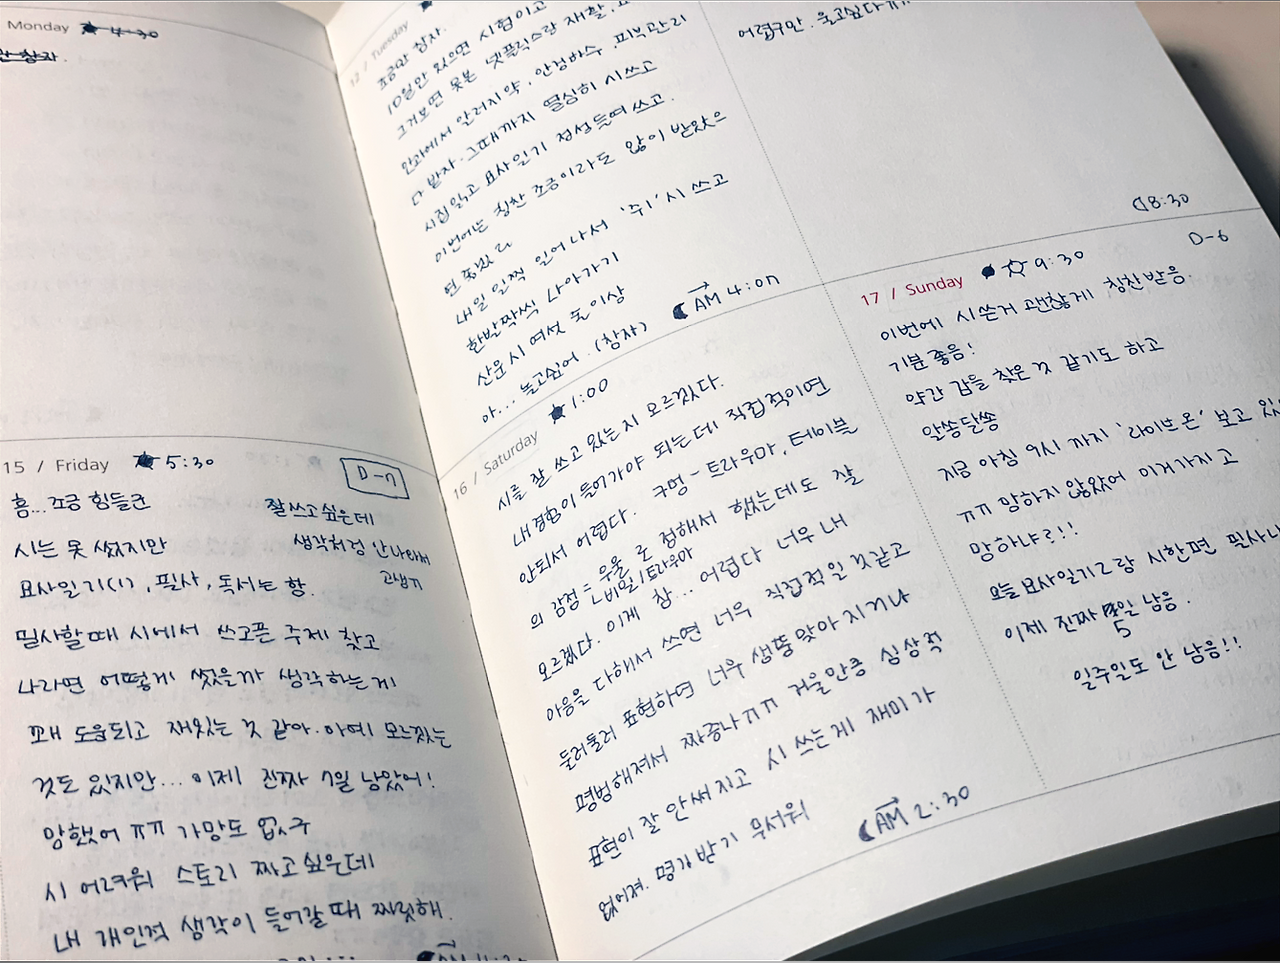 Monday ★ 4:30
참자.
15 / Friday ★ 5:30
D-7
흠... 조금 힘들군
잘쓰고싶은데
시는 못 썼지만
생각처럼 안나와서
묘사일기(1), 필사, 독서는 함.
고생ㄲ
필사할때 시에서 쓰고픈 주제 찾고
나라면 어떻게 썼을까 생각하는게
꽤 도움되고 재밌는 것 같아. 아예 모르겠는
것도 있지만... 이제 진짜 7일 남았어!
망했어 ㅠㅠ 가망도 없구
시 어려워 스토리 짜고싶은데
내 개인적 생각이 들어갈 때 짜릿해.
12 / Tuesday
조금만 참자.
10일만 있으면 시험이고
그거보면 못본 넷플릭스랑 재활,
안과에서 알러지약, 안경하수, 피부관리
다 받자. 그때까지 열심히 시쓰고
시집읽고 묘사일기 정성들여 쓰고.
이번에는 칭찬 조금이라도 많이 받았으
면 좋겠고
내일 일찍 일어나서 '쥐' 시 쓰고
한발짝씩 나아가기
산문시 여섯 줄 이상
아... 놀고싶어. (참자)
AM 4:00
16 / Saturday ★ 1:00
시를 잘 쓰고 있는지 모르겠다.
내경험이 들어가야 되는데 직접적이면
안되서 어렵다. 구멍 - 트라우마, 테이블
의 감정 = 우울 로 정해서 했는데도 잘
ㄴ비밀/트라우마
모르겠다. 이게 참... 어렵다 너무 내
마음을 다해서 쓰면 너무 직접적일 것같고
둘러둘러 표현하면 너무 생뚱맞아 지거나
평범해져서 짜증나ㅠㅠ 거울만큼 심상적
표현이 잘 안써지고 시 쓰는게 재미가
없어져. 평가받기 무서워
AM 2:30
어렵구만. 울고싶다
8:30
D-6
17 / Sunday ● ☆ 9:30
이번에 시쓴거 괜찮게 칭찬받음.
기분좋음!
약간 감을 찾은 것 같기도 하고
알쏭달쏭
지금 아침 9시 까지 '라이브온' 보고 있
ㅠㅠ 망하지 않았어 이거가지고
망하냐구!!
오늘 묘사일기2랑 시한편 필사
이제 진짜 5일 남음.
일주일도 안 남음!!